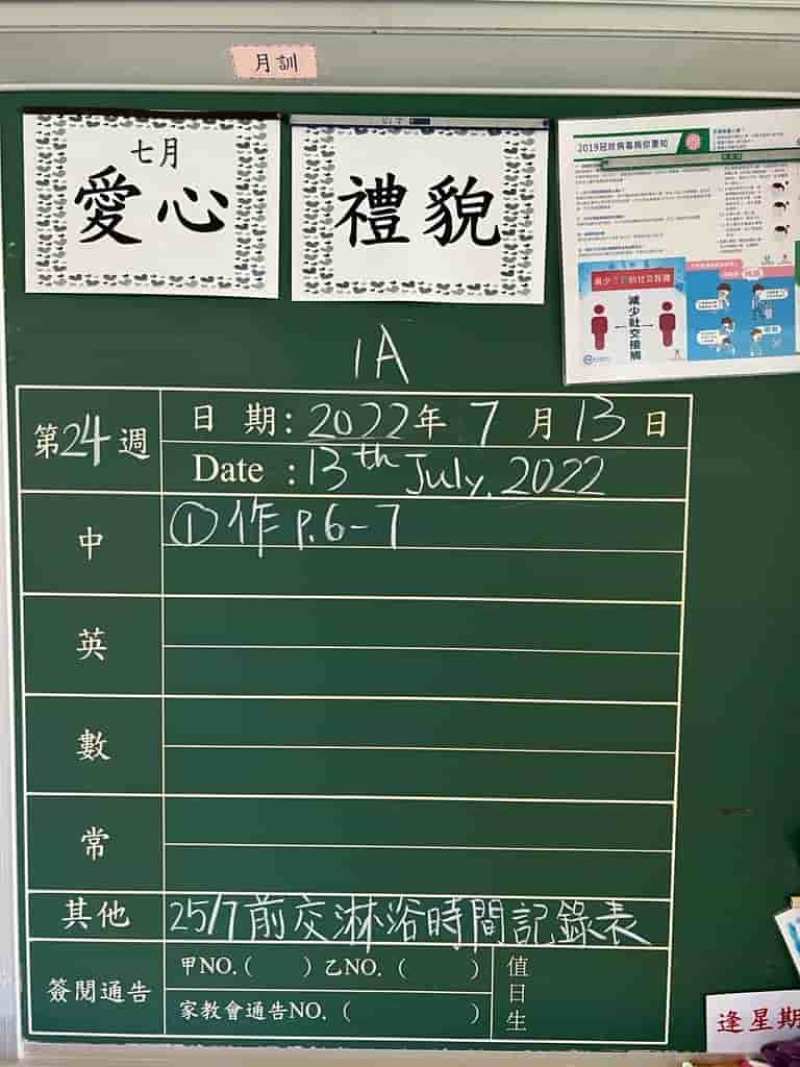 月訓
七月
愛心
禮貌
2019冠狀病毒病你要知
減少社交接觸
1A
第24週
日期：2022年7月13日
Date：13th July, 2022
中
①作 P.6-7
英
數
常
其他
25/7前交淋浴時間記錄表
簽閱通告
甲NO.（ ）乙NO.（ ）
家教會通告NO.（ ）
值日生
逢星期